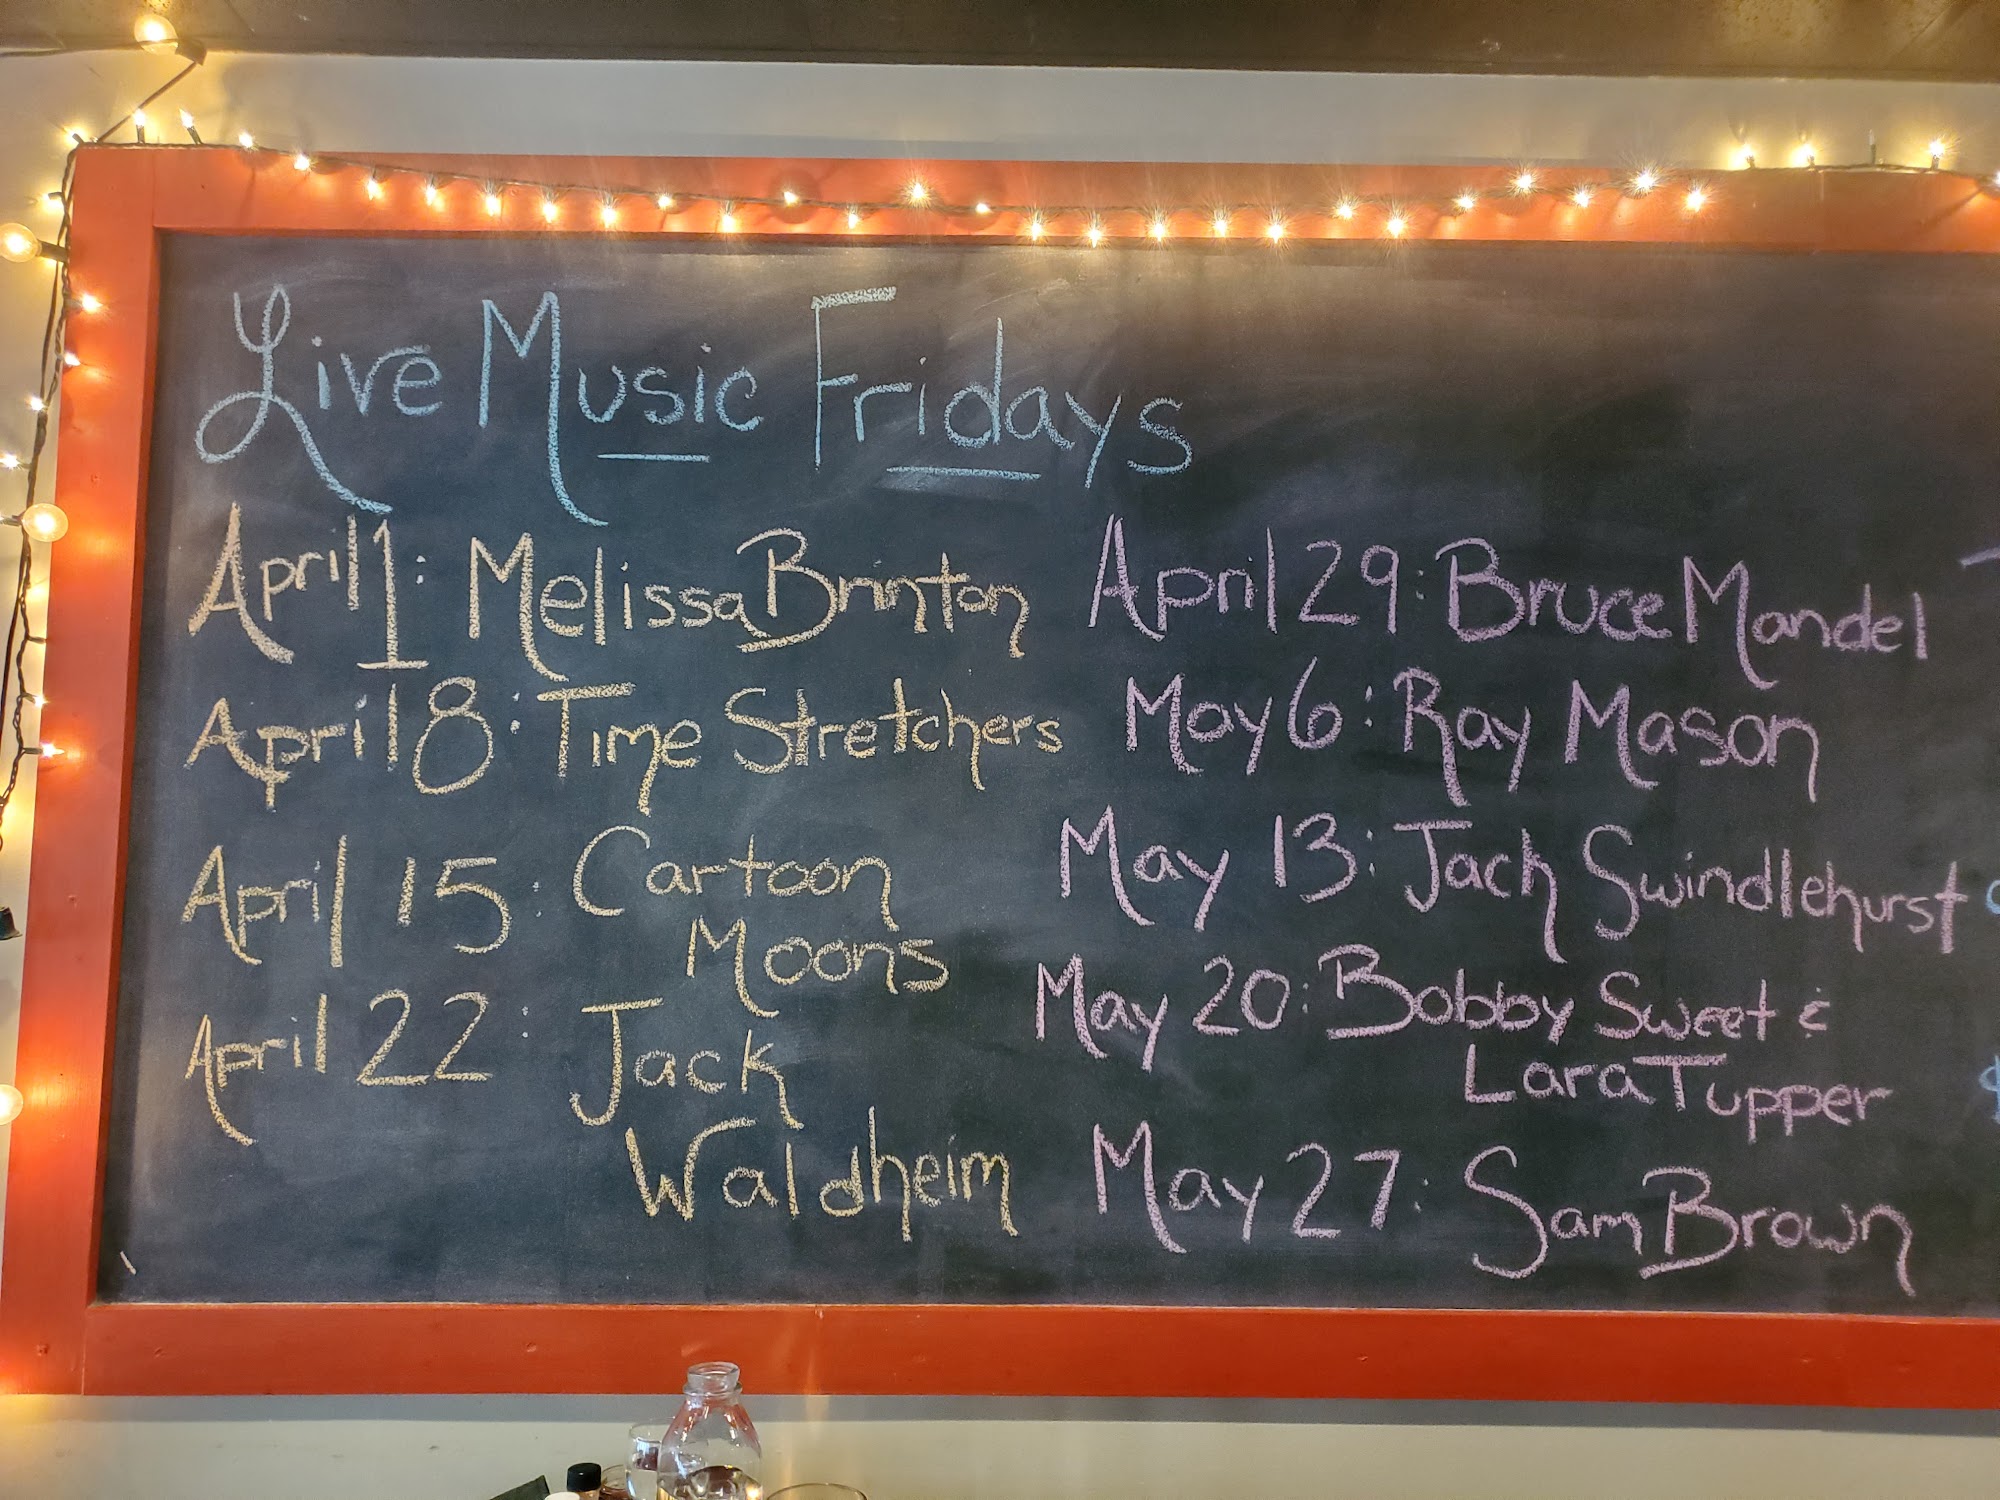 Live Music Fridays
April 1: Melissa Brinton
April 8: Time Stretchers
April 15: Cartoon
Moons
April 22: Jack
Waldheim
April 29: Bruce Mandel
May 6: Ray Mason
May 13: Jack Swindlehurst
May 20: Bobby Sweet &
Lara Tupper
May 27: Sam Brown